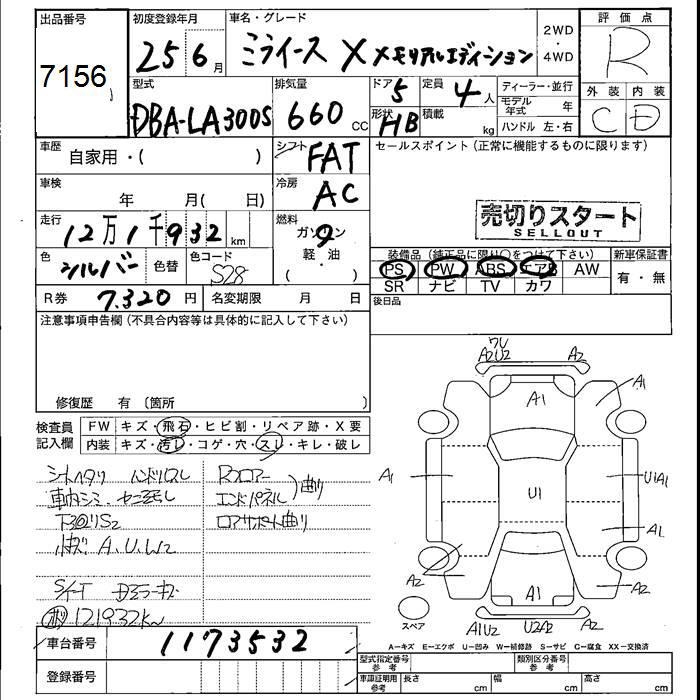 出品番号
7156
初度登録年月
25 6月
車名・グレード
ミライース X メモリアルエディション
2WD
・
4WD
評価点
R
外装 内装
C D
型式
DBA-LA300S
排気量
660 CC
ドア 5
形状 HB
定員 4人
積載 kg
ディーラー・並行
モデル年式 年
ハンドル 左・右
車歴
自家用・( )
シフト FAT
セールスポイント(正常に機能するものに限ります)
車検
年 月( 日)
冷房 AC
売切りスタート
SELLOUT
走行
12万1千932 km
燃料
ガソリン
軽・油
( )
色 シルバー
色替
色コード S28
装備品(純正品に限り○をつけて下さい)
PS PW ABS エアB AW
SR ナビ TV カワ
新車保証書
有・無
R券 7.320円
名変期限 月 日
後日品
注意事項申告欄(不具合内容等は具体的に記入して下さい)
修復歴 有 〔箇所 〕
検査員
記入欄
FW キズ・飛石・ヒビ割・リペア跡・X要
内装 キズ・汚レ・コゲ・穴・スレ・キレ・破レ
シートヘタリ ハンドルスレ
車内シミ
Rフロアー
エンドパネル
曲り
ロアサポート曲り
A.U.W2
121932km
ワレ
A2U2 A2
A1 A1
A1 U1 U1A1
A1
A2 A1 A2
A1U2 U2A2
スペア
A=キズ E=エクボ U=凹み W=補修跡 S=サビ C=腐食 XX=交換済
車台番号 1173532
登録番号
型式指定番号
参考
類別区分番号
参考
車庫証明用
参考
長さ cm
幅 cm
高さ cm